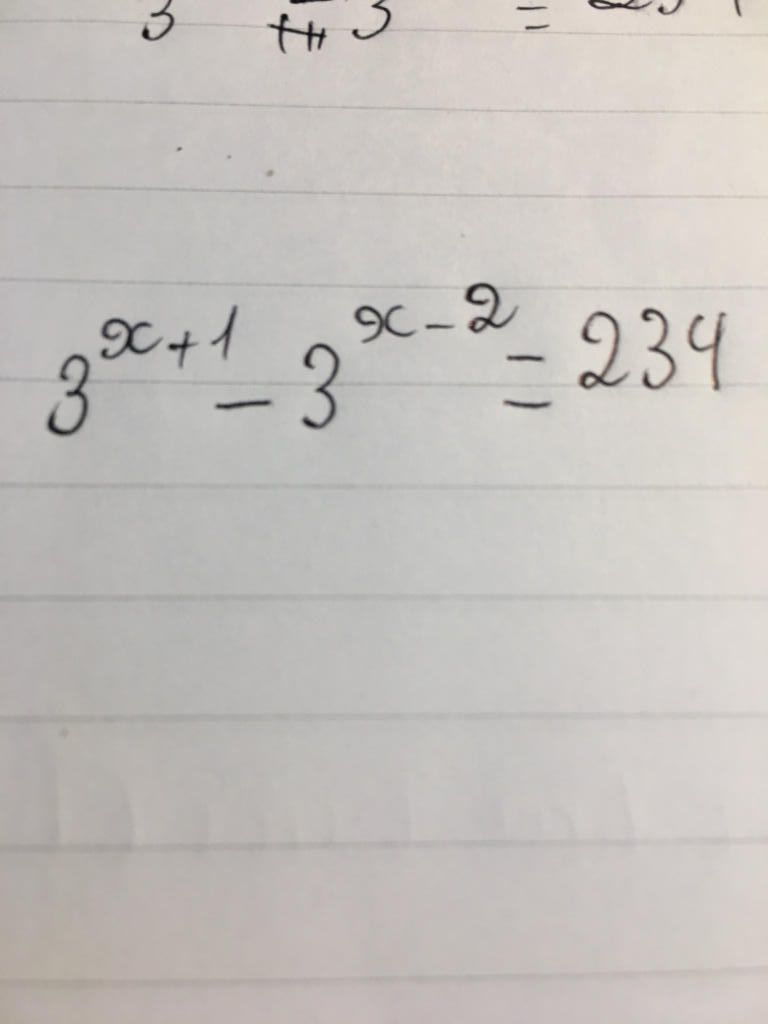 3^{x+1} - 3^{x-2} = 234